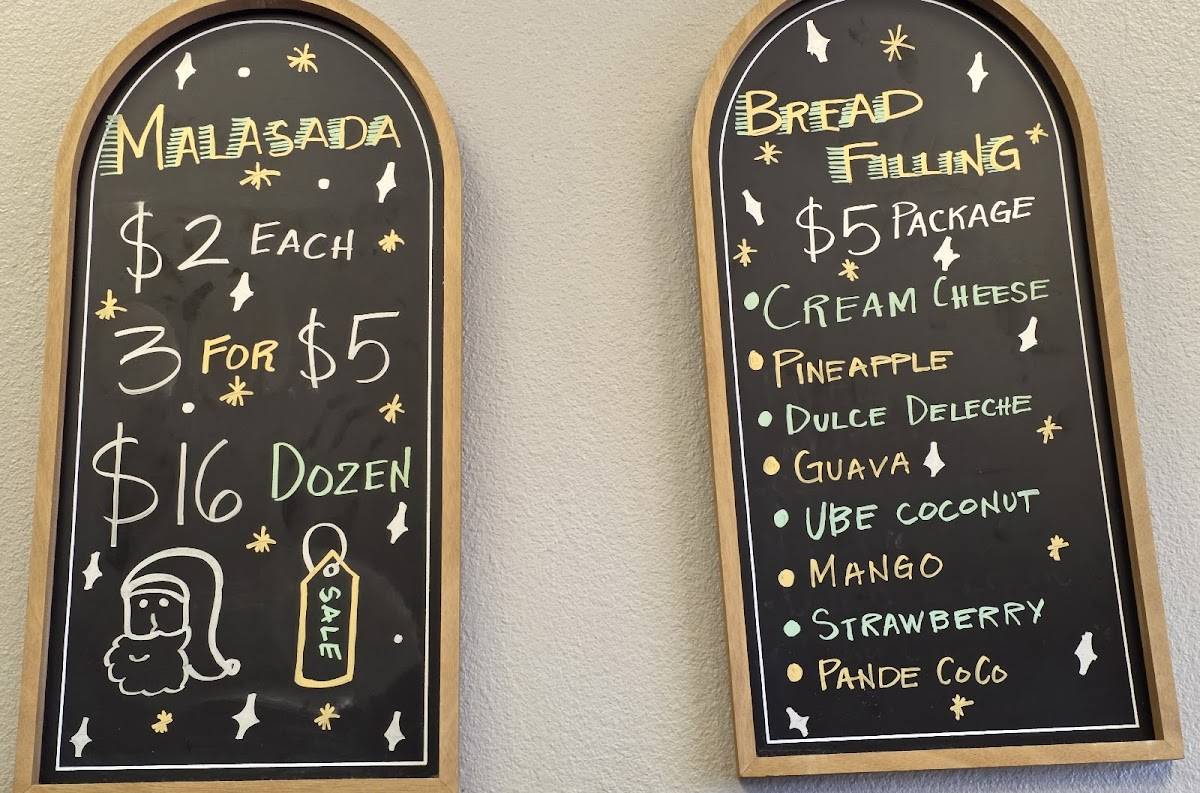 MALASADA
$2 EACH
3 FOR $5
$16 DOZEN
SALE
BREAD
FILLING
$5 PACKAGE
• CREAM CHEESE
• PINEAPPLE
• DULCE DELECHE
• GUAVA
• UBE COCONUT
• MANGO
• STRAWBERRY
• PANDE COCO